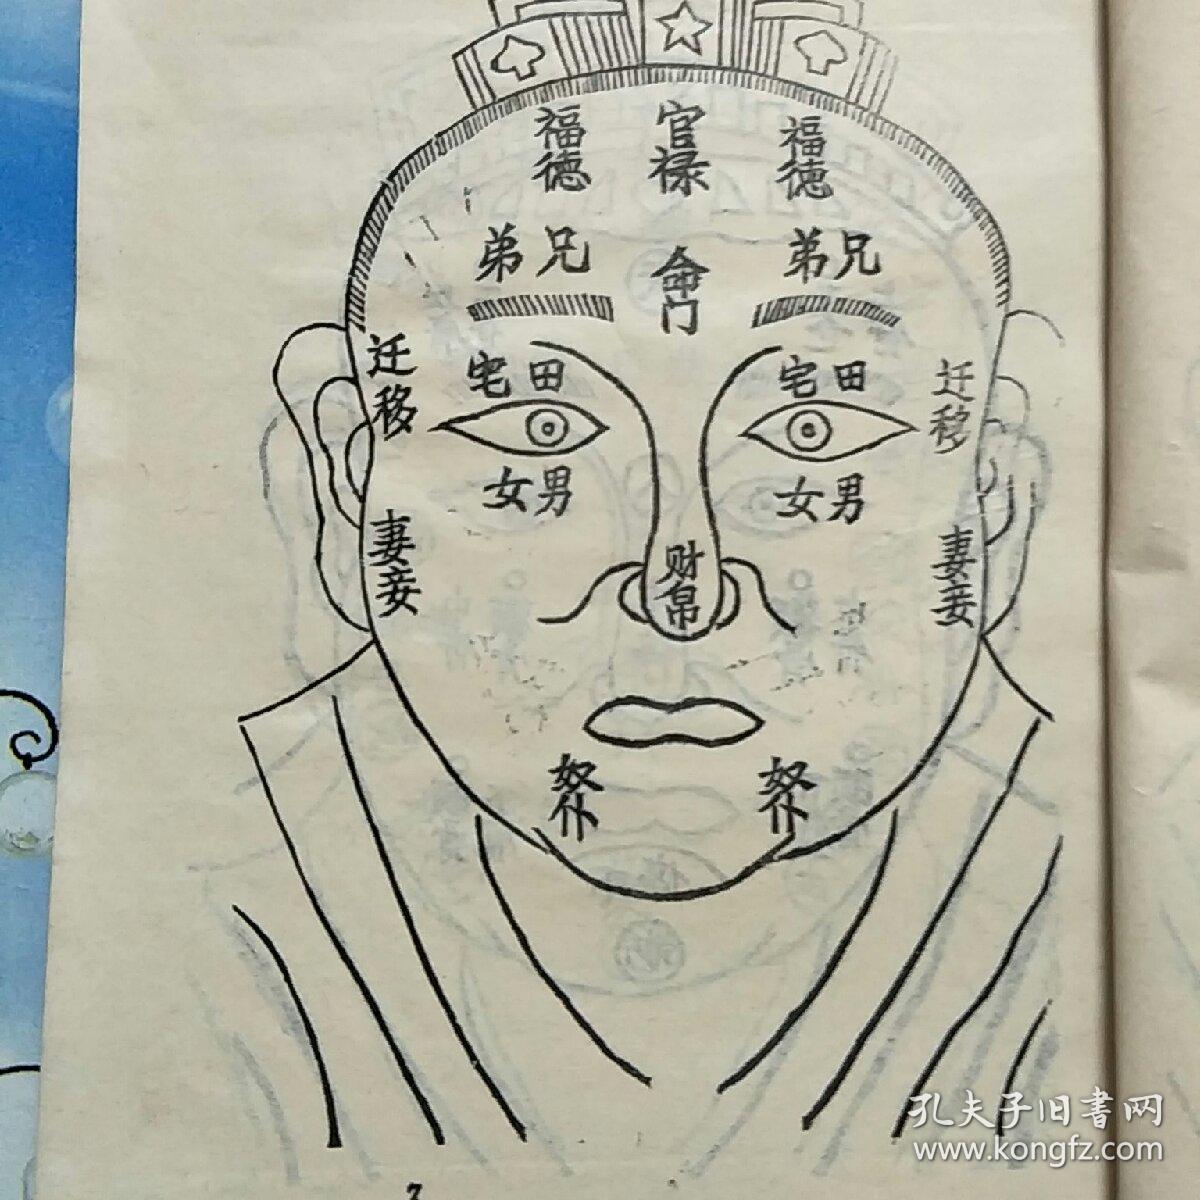 福德
官禄
福德
弟兄
命门
弟兄
迁移
宅田
宅田
迁移
女男
女男
妻妾
财帛
妻妾
奴仆
奴仆
孔夫子旧書网
www.kongfz.com